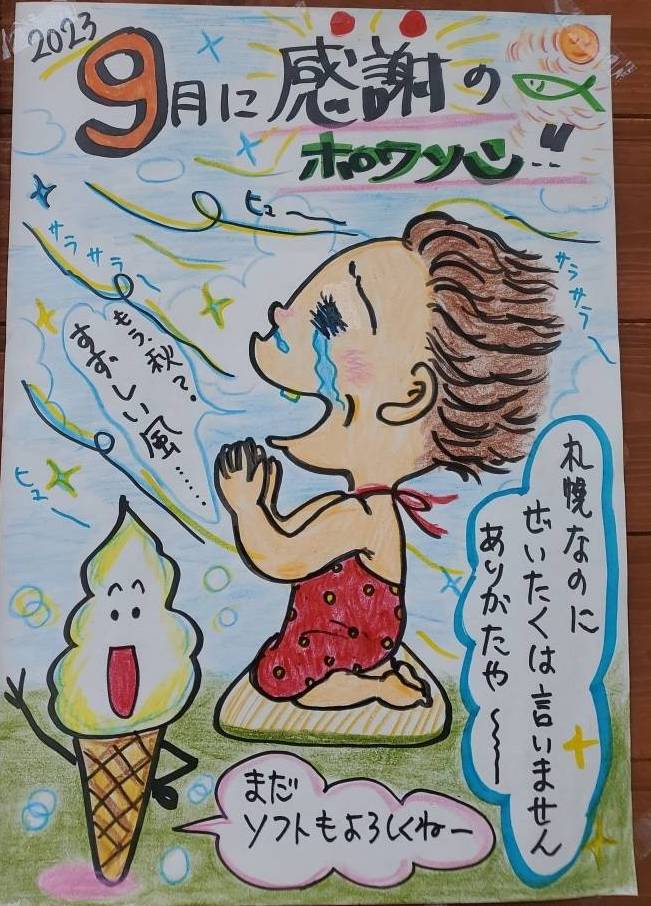 2023
9月に感謝の
ホロワソン!!
ヒュー
サラサラ〜
サラサラ〜
もう、秋?.
すずしい風……
ヒュー
札幌なのに
ぜいたくは言いません
ありがたや〜
まだ
ソフトもよろしくねー